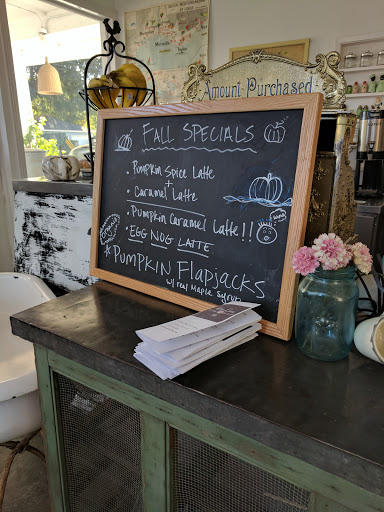 Amount Purchased
FALL SPECIALS
• Pumpkin Spice Latte
+
• Caramel Latte
Pumpkin Caramel Latte!!
• EGG NOG LATTE
* PUMPKIN FLAPJACKS
w/ real Maple Syrup